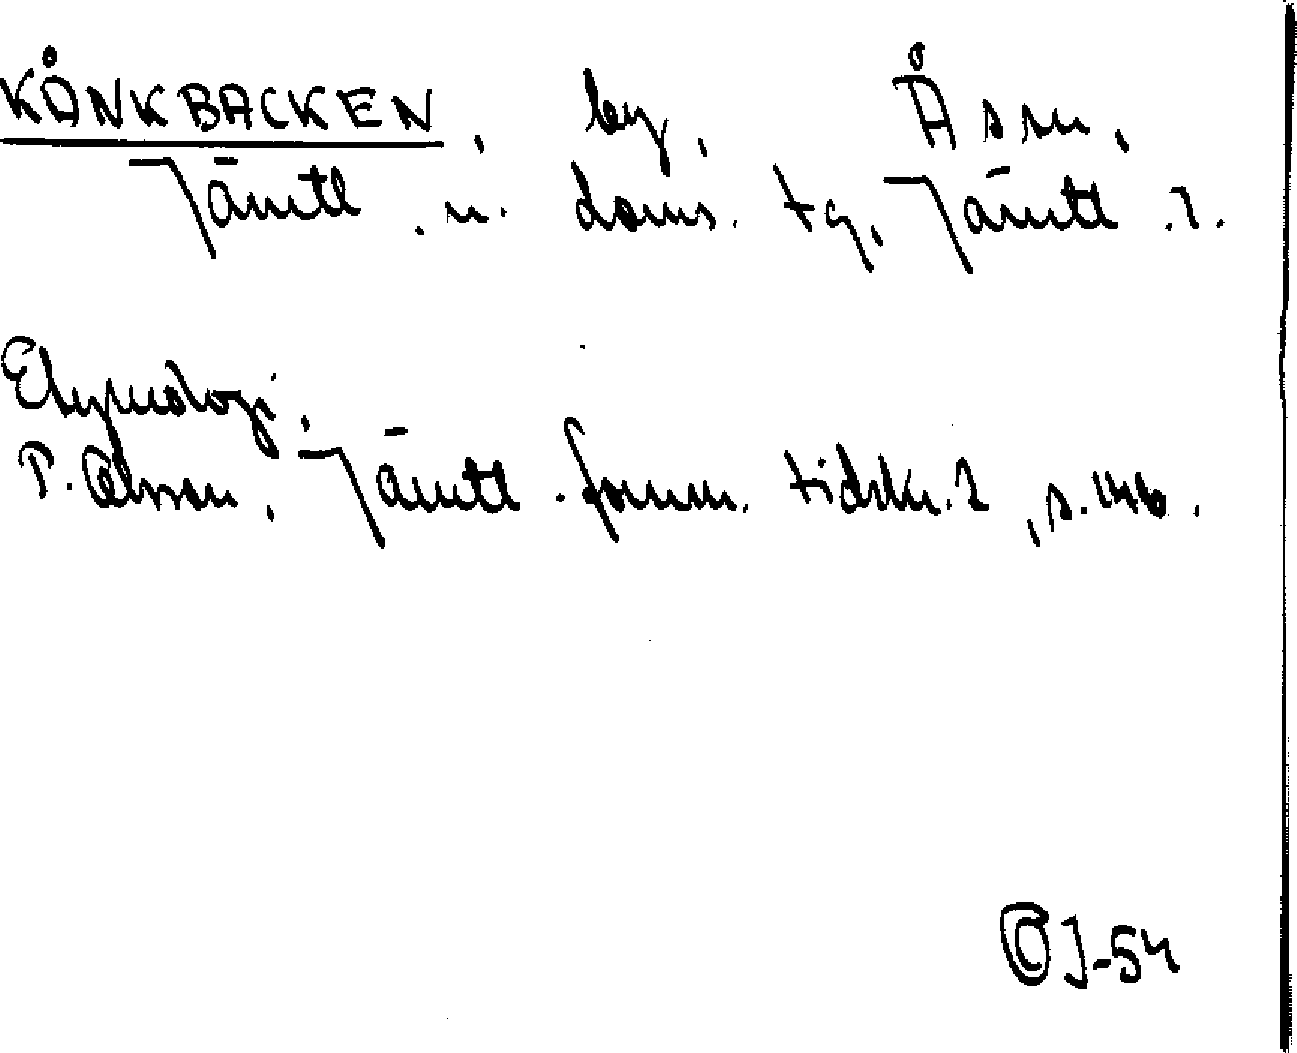 KÅNKBACKEN, by, Ås sn,
Jämtl. n. doms. tg, Jämtl. l.
Etymologi.
P. Olsson, Jämtl. fornm. tidskr. 1, s. 146.
OJ-54